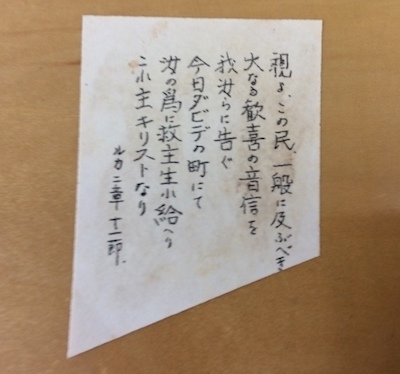 視よ、この民、一般に及ぶべき
大なる歓喜の音信を
我汝らに告ぐ
今日ダビデの町にて
汝の爲に救主生れ給へり
これ主キリストなり
ルカ二章十一節.